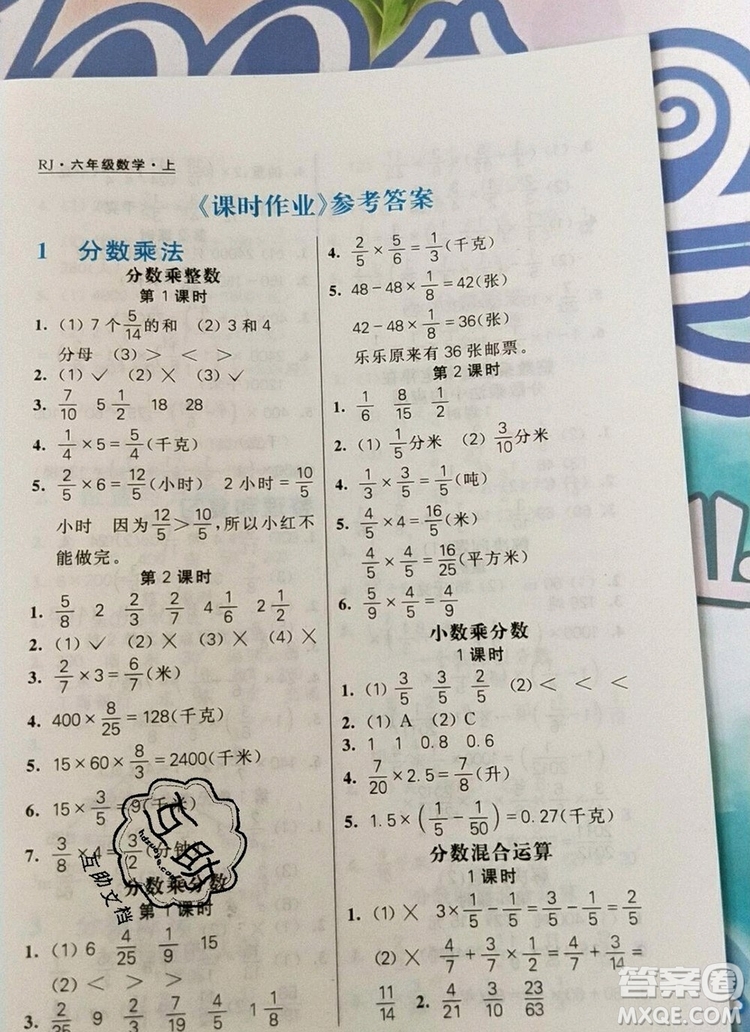 RJ·六年级数学·上
《课时作业》参考答案
1 分数乘法
分数乘整数
第1课时
1. (1) 7个5/14的和 (2) 3和4
分母 (3) > < >
2. (1) ✓ (2) ✓ (3) ╳
3. 7/10 5 1/2 18 28
4. 1/4×5=5/4(千克)
5. 2/5×6=12/5(小时) 2小时=10/5
小时 因为12/5>10/5,所以小红不
能做完。
第2课时
1. 5/8 2 2/3 2/7 4 1/2 2 1/2
2. (1) ✓ (2) ╳ (3) ╳ (4) ╳
3. 2/7×3=6/7(米)
4. 400×8/25=128(千克)
5. 15×60×8/3=2400(千米)
6. 15×3/5=9(千米)
7. 3/8×4=3/2(分钟)
分数乘分数
第1课时
1. (1) 6 4/25 1/9 15
(2) = < >
3. 2/9 1/24 8/25 9/40 1 1/8
4. 2/5×5/6=1/3(千克)
5. 48-48×1/8=42(张)
42-48×1/8=36(张)
乐乐原来有36张邮票。
第2课时
1. 1/6 8/15 1/2
2. (1) 1/5分米 (2) 3/10分米
4. 1/3×3/5=1/5(吨)
5. 4/5×4=16/5(米)
4/5×4/5=16/25(平方米)
6. 5/9×4/5=4/9
小数乘分数
1课时
1. (1) 3/5 3/5 2/5 (2) < < <
2. (1) A (2) C
3. 1 1 0.8 0.6
4. 7/20×2.5=7/8(升)
5. 1.5×(1/5-1/50)=0.27(千克)
分数混合运算
1课时
1. (1) ╳ 3×1/5-1/5=3/5-1/5=2/5
(2) ╳ 4/7+3/7×1/2=4/7+3/14=
11/14 2. 4/21 3/10 23/63
互助
hdzuoye.com
互助文档
答案圈
MXQE.COM